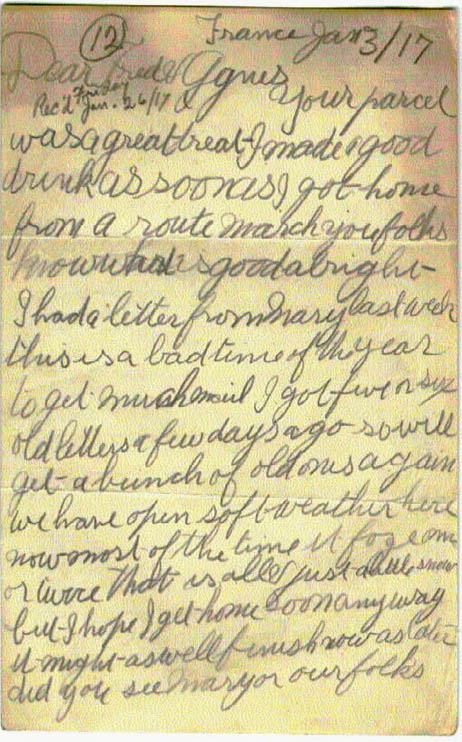 12 France Jan 3/17
Dear Fred & Agnes
Friday
Rec'd Jan. 26/17
Your parcel
was a great treat I made a good
drink as soon as I got home
from a route march you folks
know what is good alright
I had a letter from Mary last week
this is a bad time of the year
to get much mail I got five or six
old letters a few days ago so will
get a bunch of old ones again
we have open soft weather here
now most of the time it
or twice that is all just a little snow
but I hope I get home soon anyway
it might as well finish now as later
did you see Mary or our folks